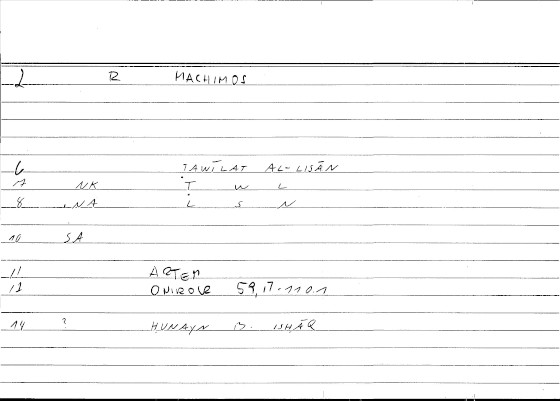 2 R MACHIMOS
6 ṬAWĪLAT AL-LISĀN
7 NK Ṭ W L
8 NA L S N
10 SA
11 ARTEM
12 ONIROCR 59,17-110.1
14 ? ḤUNAYN B. ISḤĀQ